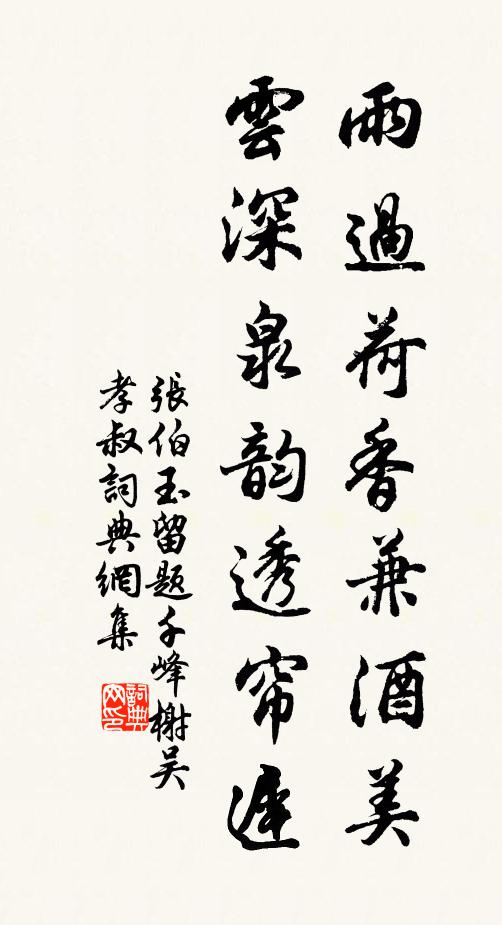 雨過荷香兼酒美
雲深泉韵透帘遲
張伯玉留題千峰榭吴
孝叔詞典網集
詞典网印